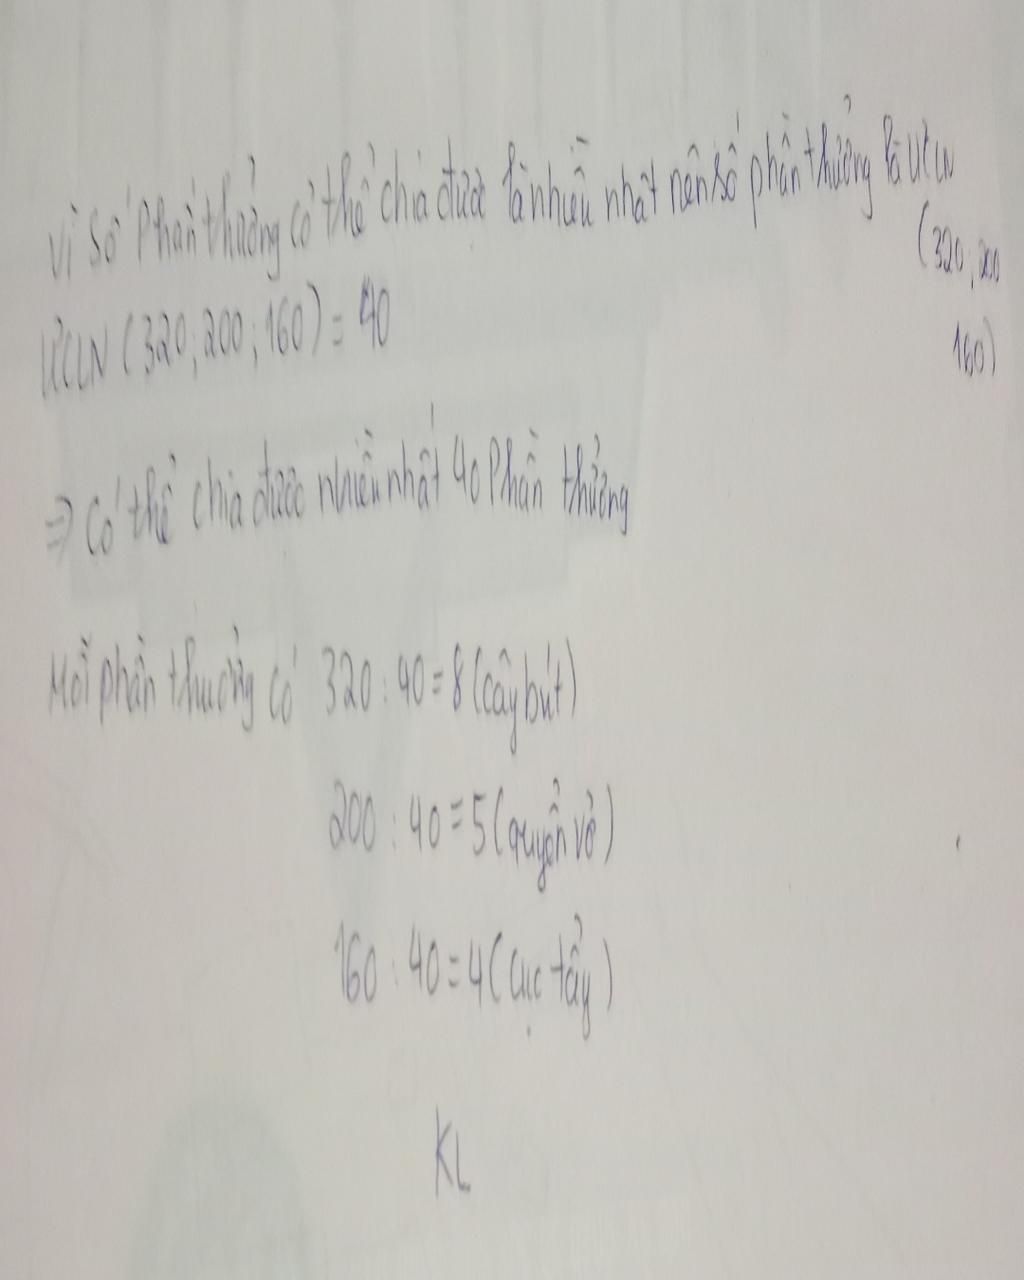 Vì số phần thưởng có thể chia được là nhiều nhất nên số phần thưởng là ƯCLN
(320; 200
160)
ƯCLN (320; 200; 160) = 40
=> Có thể chia được nhiều nhất 40 phần thưởng
Mỗi phần thưởng có 320 : 40 = 8 (cây bút)
200 : 40 = 5 (quyển vở)
160 : 40 = 4 (cục tẩy)
KL